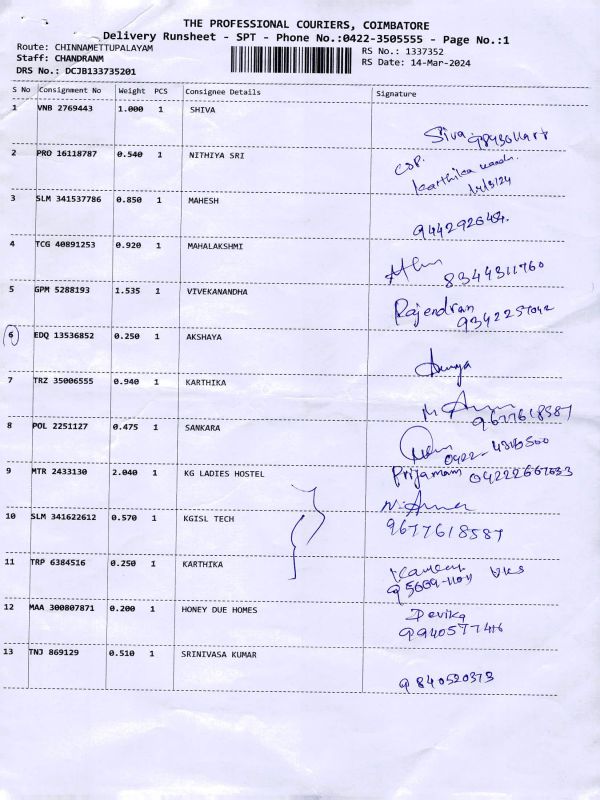 THE PROFESSIONAL COURIERS, COIMBATORE
Delivery Runsheet - SPT - Phone No.:0422-3505555 - Page No.:1
Route: CHINNAMETTUPALAYAM
RS No.: 1337352
Staff: CHANDRANM
RS Date: 14-Mar-2024
DRS No.: DCJB133735201
S No Consignment No Weight PCS Consignee Details Signature
1 VNB 2769443 1.000 1 SHIVA
Siva
2 PRO 16118787 0.540 1 NITHIYA SRI
Karthika
14/3/24
3 SLM 341537786 0.850 1 MAHESH
4 TCG 40891253 0.920 1 MAHALAKSHMI
8344311760
5 GPM 5288193 1.535 1 VIVEKANANDHA
Rajendran
9342257042
6 EDQ 13536852 0.250 1 AKSHAYA
7 TRZ 35006555 0.940 1 KARTHIKA
9677618587
8 POL 2251127 0.475 1 SANKARA
9 MTR 2433130 2.040 1 KG LADIES HOSTEL
04222667033
10 SLM 341622612 0.570 1 KGISL TECH
9677618587
11 TRP 6384516 0.250 1 KARTHIKA
12 MAA 300807871 0.200 1 HONEY DUE HOMES
Devika
9940577416
13 TNJ 869129 0.510 1 SRINIVASA KUMAR
9840520373